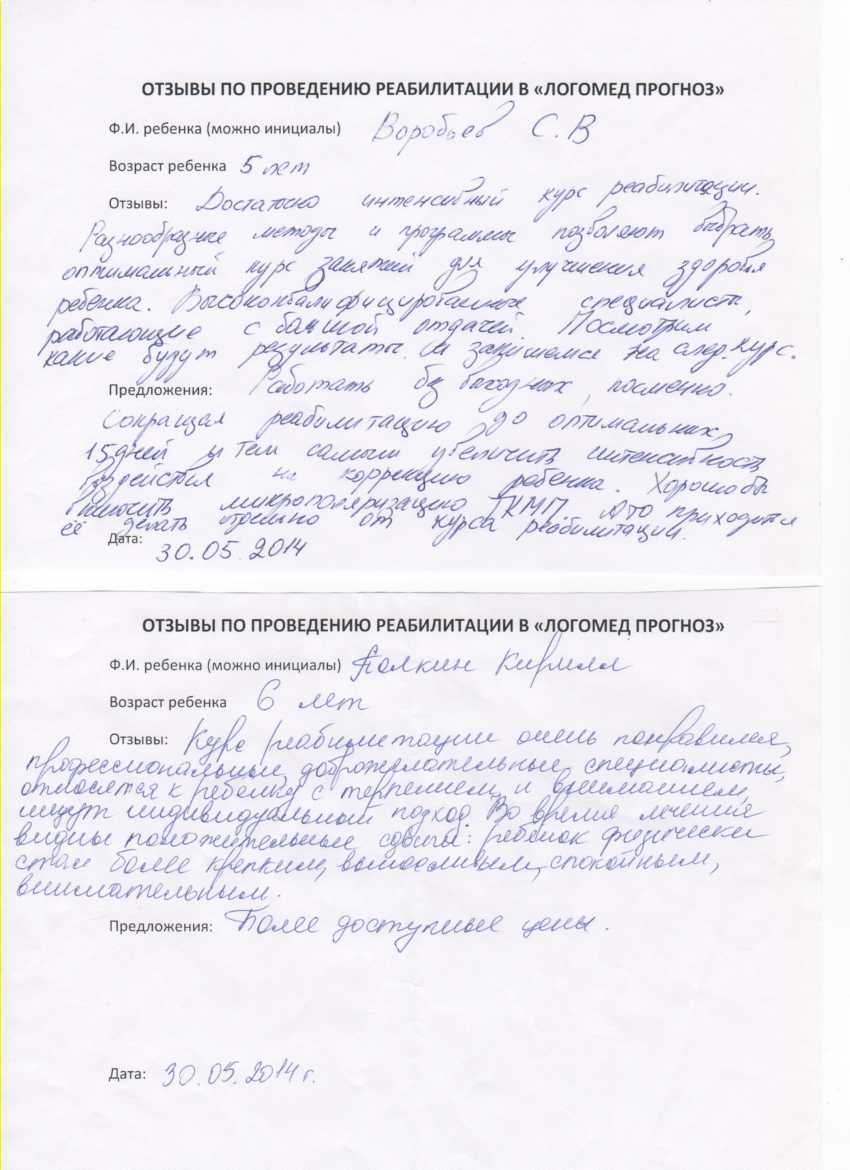 ОТЗЫВЫ ПО ПРОВЕДЕНИЮ РЕАБИЛИТАЦИИ В «ЛОГОМЕД ПРОГНОЗ»
Ф.И. ребенка (можно инициалы) Воробьев С.В
Возраст ребенка 5 лет
Отзывы: Достаточно интенсивный курс реабилитации.
Разнообразные методы и программы позволяют выбрать
оптимальный курс занятий для улучшения здоровья
ребёнка. Высококвалифицированные специалисты,
работающие с большой отдачей. Посмотрим
какие будут результаты. И запишемся на след. курс.
Предложения: Работать без выходных, посменно.
Сокращая реабилитацию до оптимальных
15 дней и тем самым увеличить интенсивность
воздействия на коррекцию ребенка. Хорошо бы
включить микрополяризацию ТКМП. А то приходится
её делать отдельно от курса реабилитации.
Дата: 30.05.2014
ОТЗЫВЫ ПО ПРОВЕДЕНИЮ РЕАБИЛИТАЦИИ В «ЛОГОМЕД ПРОГНОЗ»
Ф.И. ребенка (можно инициалы) Кирилл
Возраст ребенка 6 лет
Отзывы: Курс реабилитации очень понравился,
профессиональные, доброжелательные специалисты,
относятся к ребенку с терпением и вниманием,
ищут индивидуальный подход. Во время лечения
видны положительные сдвиги: ребёнок физически
стал более крепким, выносливым, спокойным,
внимательным.
Предложения: Более доступные цены.
Дата: 30.05.2014 г.